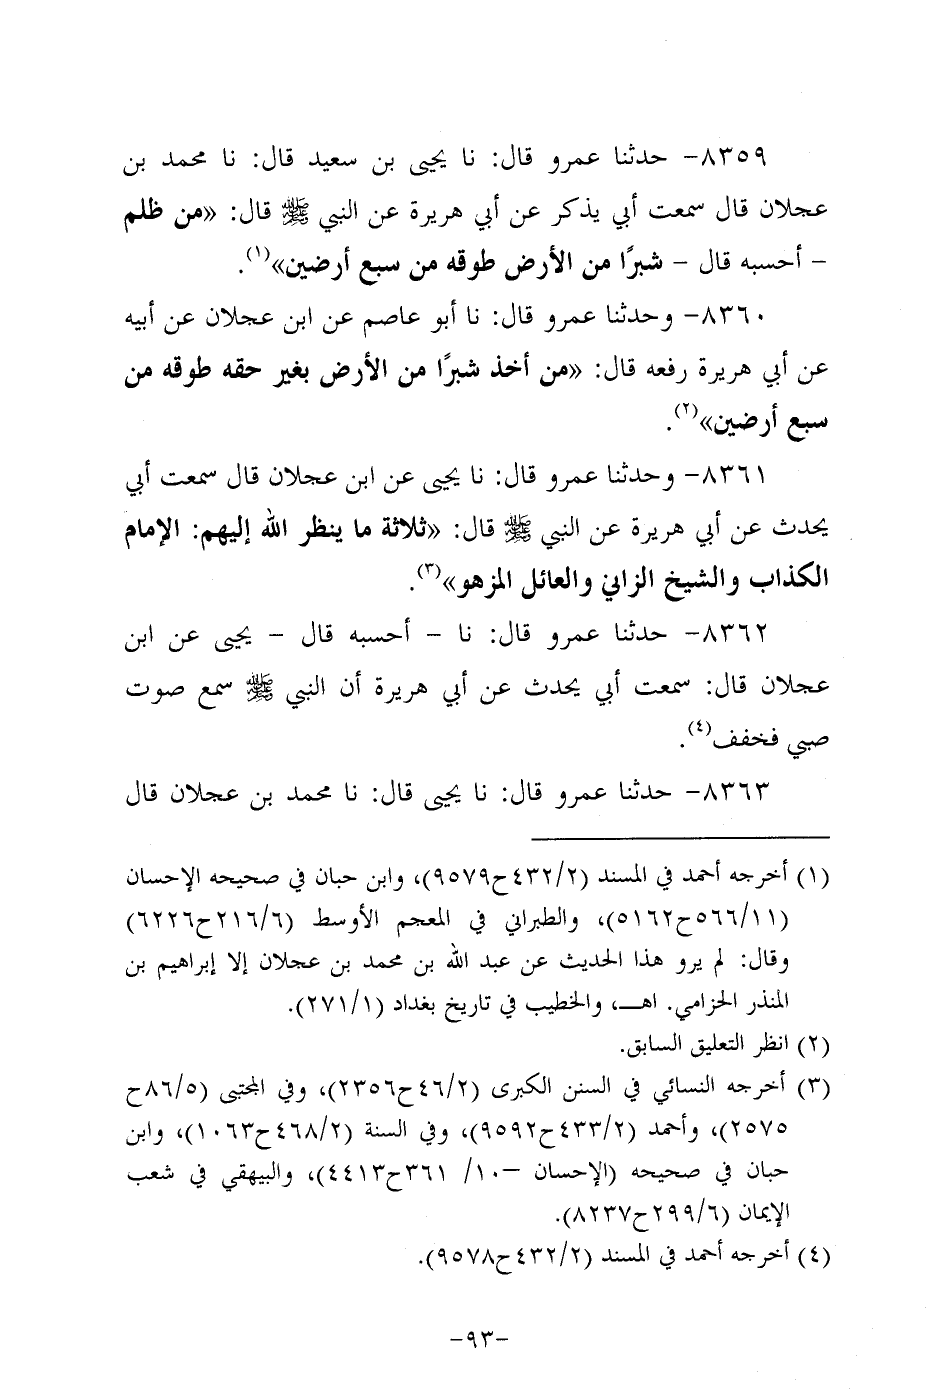 ٨٣٥٩- حدثنا عمرو قال: نا يحيى بن سعيد قال: نا محمد بن
عجلان قال سمعت أبي يذكر عن أبي هريرة عن النبي ﷺ قال: «من ظلم
- أحسبه قال - شبرًا من الأرض طوقه من سبع أرضين»(١).
٨٣٦٠- وحدثنا عمرو قال: نا أبو عاصم عن ابن عجلان عن أبيه
عن أبي هريرة رفعه قال: «من أخذ شبرًا من الأرض بغير حقه طوقه من
سبع أرضين»(٢).
٨٣٦١- وحدثنا عمرو قال: نا يحيى عن ابن عجلان قال سمعت أبي
يحدث عن أبي هريرة عن النبي ﷺ قال: «ثلاثة ما ينظر الله إليهم: الإمام
الكذاب والشيخ الزاني والعائل المزهو»(٣).
٨٣٦٢- حدثنا عمرو قال: نا - أحسبه قال - يحيى عن ابن
عجلان قال: سمعت أبي يحدث عن أبي هريرة أن النبي ﷺ سمع صوت
صبي فخفف(٤).
٨٣٦٣- حدثنا عمرو قال: نا يحيى قال: نا محمد بن عجلان قال
(١) أخرجه أحمد في المسند (٤٣٢/٢ح٩٥٧٩)، وابن حبان في صحيحه الإحسان
(٥٦٦/١١ح٥١٦٢)، والطبراني في المعجم الأوسط (٢١٦/٦ح٦٢٢٦)
وقال: لم يرو هذا الحديث عن عبد الله بن محمد بن عجلان إلا إبراهيم بن
المنذر الحزامي. اهـ، والخطيب في تاريخ بغداد (٢٧١/١).
(٢) انظر التعليق السابق.
(٣) أخرجه النسائي في السنن الكبرى (٤٦/٢ح٢٣٥٦)، وفي المجتبى (٨٦/٥ح
٢٥٧٥)، وأحمد (٤٣٣/٢ح٩٥٩٢)، وفي السنة (٤٦٨/٢ح١٠٦٣)، وابن
حبان في صحيحه (الإحسان -١٠/ ٣٦١ح٤٤١٣)، والبيهقي في شعب
الإيمان (٢٩٩/٦ح٨٢٣٧).
(٤) أخرجه أحمد في المسند (٤٣٢/٢ح٩٥٧٨).
-٩٣-